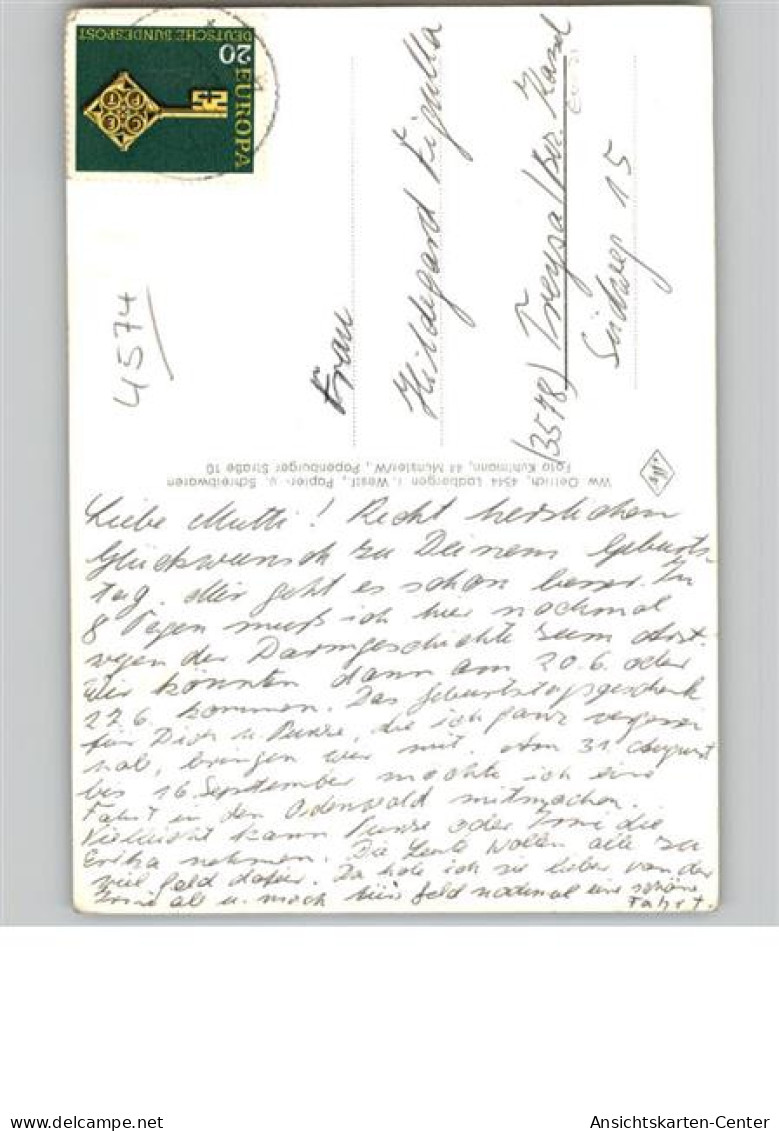 DEUTSCHE BUNDESPOST
20
EUROPA
C E P T
4574
Frau
Hildegard Figulla
(3578) Treysa/Bez. Kassel
Südweg 15
Ww Oelrich, 4544 Ladbergen i. Westf., Papier- u. Schreibwaren
Foto Kuhlmann, 44 Münster/W., Papenburger Straße 10
Liebe Mutti! Recht herzlichen
Glückwunsch zu Deinem Geburts-
tag. Mir geht es schon besser. In
8 Tagen muß ich hier nochmal
wegen der Darmgeschichte zum Arzt.
Wir könnten dann am 20.6. oder
27.6. kommen. Das Geburtstagsgeschenk
für Dich u. , die ich ganz vergessen
hab, bringen wir mit. Am 31. August
bis 16. September möchte ich eine
Fahrt in den Odenwald mitmachen.
Vielleicht kann oder die
Erika nehmen. Die Leute wollen alle zu
viel Geld dafür. Da hole ich sie lieber von der
ab u. mach fürs Geld nochmal eine schöne
Fahrt.
Ansichtskarten-Center